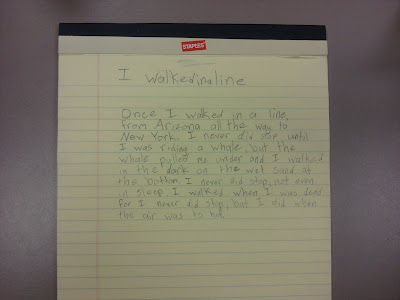 STAPLES
I walkedinaline
Once I walked in a line,
from Arizona all the way to
New York. I never did stop, until
I was riding a whale, but the
whale pulled me under and I walked
in the dark on the wet sand at
the bottom, I never did stop, not even
in sleep, I walked when I was dead
for I never did stop, but I did when
the air was to hot.